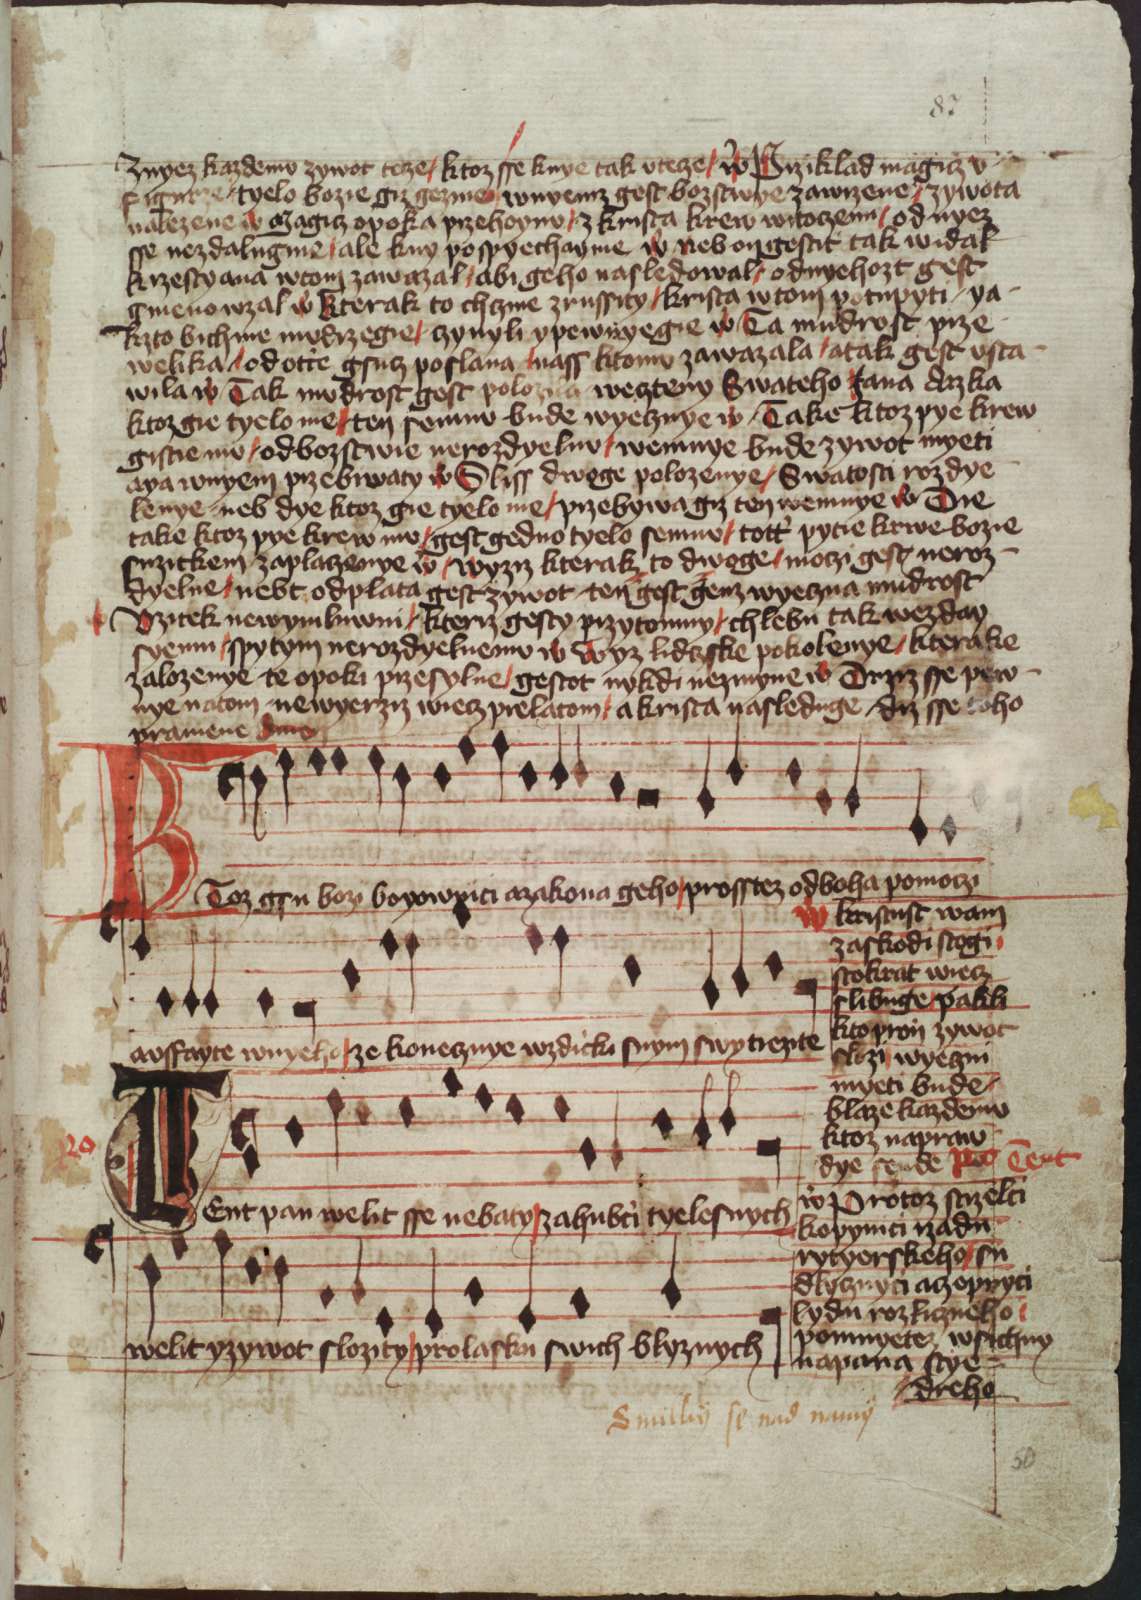 87
znyez kazdemu zywot teze / ktoz sse knye tak vteze / Przikład magicz v
figurze / tyelo bozie giz gezme / wnyemz gest bozstwye zawrzene / zywota
nalezene Magicz opoka przehoynu / z krista krew witoczenu / od nyez
sse nezdalugme / ale kny pospyechayme Neb on gestit tak widal
krzestana wtom zawazal / abi geho nasledowal / odnyehozt gest
gmeno wzal Kterak to chczme zrussity / krista wtom potupyti / ya-
kzto bichme mudrzegie / czynyli ypewnyegie Ta mudrost prze
welika / odotcie gsucz poslana / nass ktomu zawazala / atak gest vsta-
wila Tak mudrost gest polozila wecztenu Swateho Jana drzka
ktoz gie tyelo me / ten semnu bude wyecznye Take ktoz pye krew
gistie mu / odbozstwie nerozdyelnu / wemnye bude zywot myeti
aya wnyem przebiwaty Sliss dwoge polozenye / Swatosti rozdye
lenye neb dye ktoz gie tyelo me / przebywa giz ten wemnye Die
take ktoz pye krew mu / gest gedno tyelo semnu / tott pycie krwe bozie
suzitkem zaplaczenye / wyziz kterak to dwoge / moczi gest neroz-
dyelne / nebt odplata gest zywot ten gest genz wyeczna mudrost
Vzitek newymluwni / kteriz gesty przytomny / chlebu tak wezday
syemu / spytym nerozdyelnemu Wyz lidzske pokolenye / kterake
zalozenye te opoki przesylne / gestot nykdi nezmyne Drziz sse pew-
nye natom newyerziz wiecz prelatom / a krista nasleduge drz sse toho
pramene
KToz gsu bozi boyownici azakona geho / prosstez odboha pomoczi
aussayte wnyeho / ze konecznye wzdicki snym swytiezite
kristust wam
zaskodi stogi
stokrat wiecz
slibuge / pakli
kto pron zywot
slozi wyeczni
myeti bude /
blaze kazdemu
ktoz napraw-
dye sende Tent
Ro
TEnt pan welit sse nebaty / zahubci tyelesnych
welit yzywot slozity / prolasku swich blyznych
Protoz strzelci
kopynici rzadu
rytyerskeho / su
dlycznyci aczepnyci
lydu rozliczneho /
pomnyetez wsichny
napana stye-
dreho
Smilug se nad namy
50